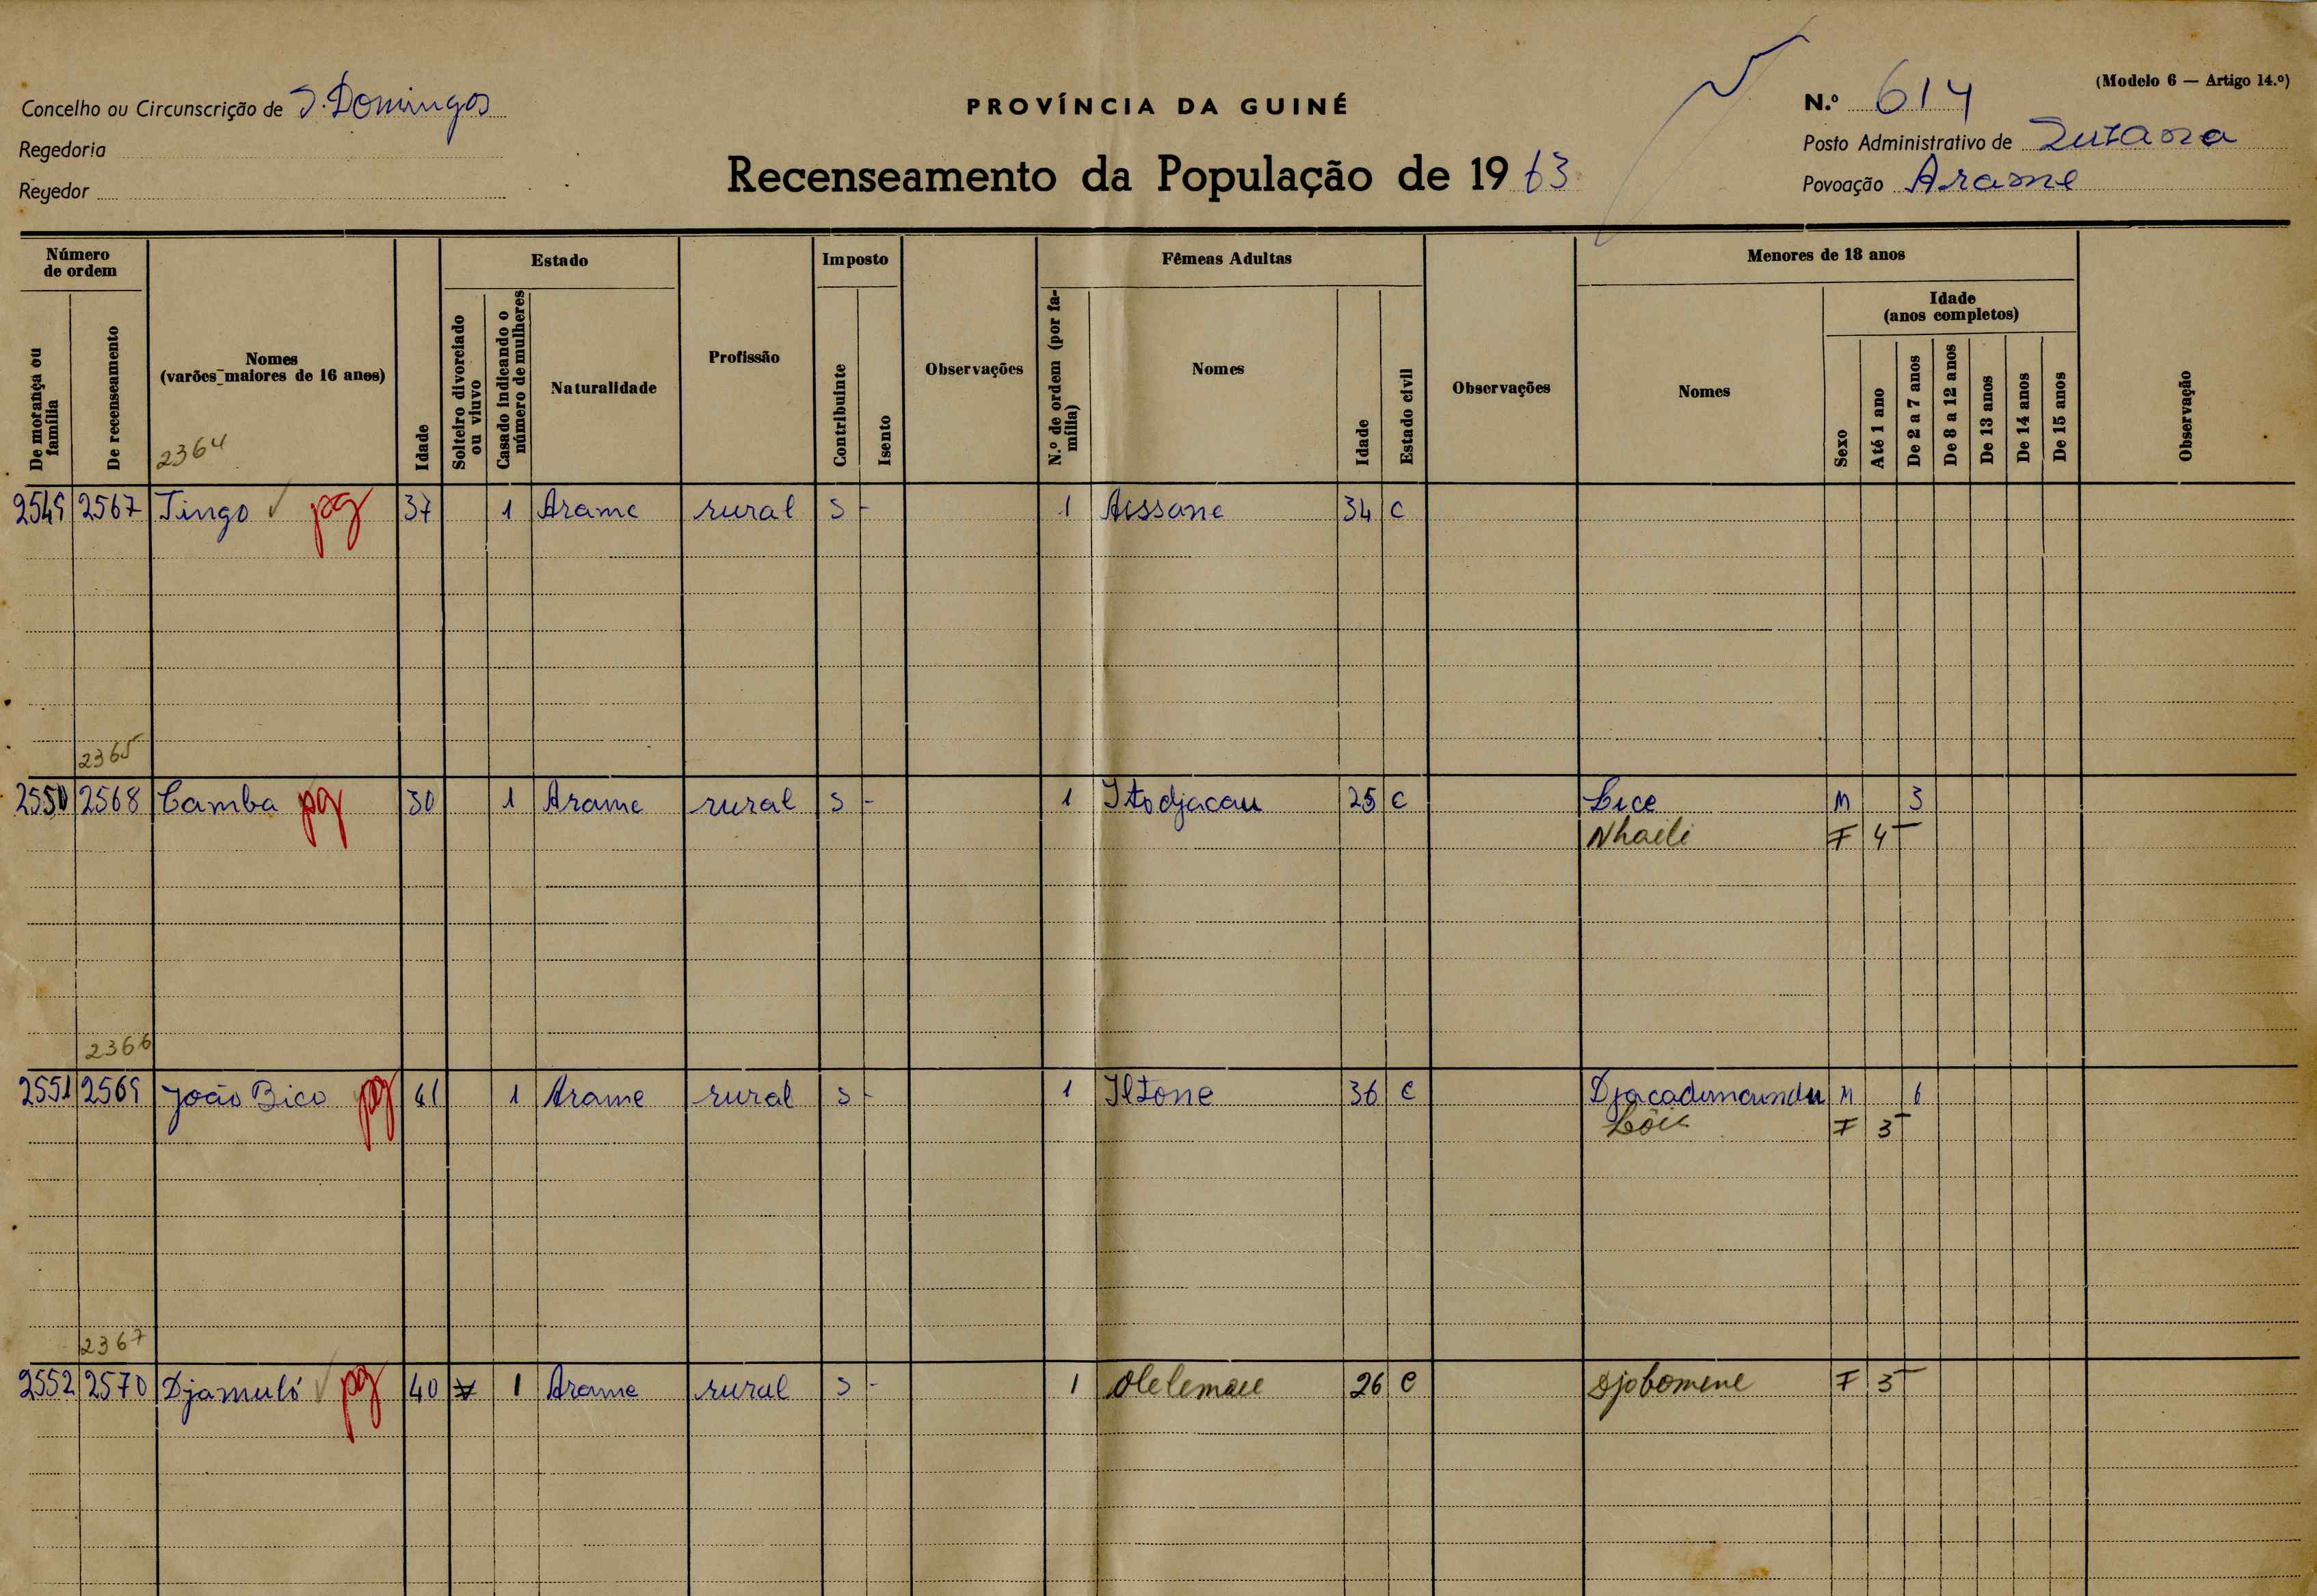 (Modelo 6 — Artigo 14.º)
Concelho ou Circunscrição de S. Domingos
PROVÍNCIA DA GUINÉ
N.º 614
Regedoria
Posto Administrativo de Suzana
Recenseamento da População de 1963
Regedor
Povoação Arame
Número de ordem
De morança ou família
De recenseamento
Nomes
(varões maiores de 16 anos)
2364
Idade
Estado
Solteiro divorciado ou viuvo
Casado indicando o número de mulheres
Naturalidade
Profissão
Imposto
Contribuinte
Isento
Observações
Fêmeas Adultas
N.º de ordem (por família)
Nomes
Idade
Estado civil
Observações
Menores de 18 anos
Nomes
Idade
(anos completos)
Sexo
Até 1 ano
De 2 a 7 anos
De 8 a 12 anos
De 13 anos
De 14 anos
De 15 anos
Observação
2549 2567 Tingo pg 37 1 Arame rural S - 1 Aissane 34 C
2365
2550 2568 Camba pg 30 1 Arame rural S - 1 Itodjacau 25 C Lice M 3
Nhaili F 4 -
2366
2551 2569 João Bico pg 41 1 Arame rural S - 1 Iltone 36 C Djacadimaindu M 6
F 3 -
2367
2552 2570 Djamuló pg 40 1 Arame rural S - 1 26 C Djobomene F 3 -